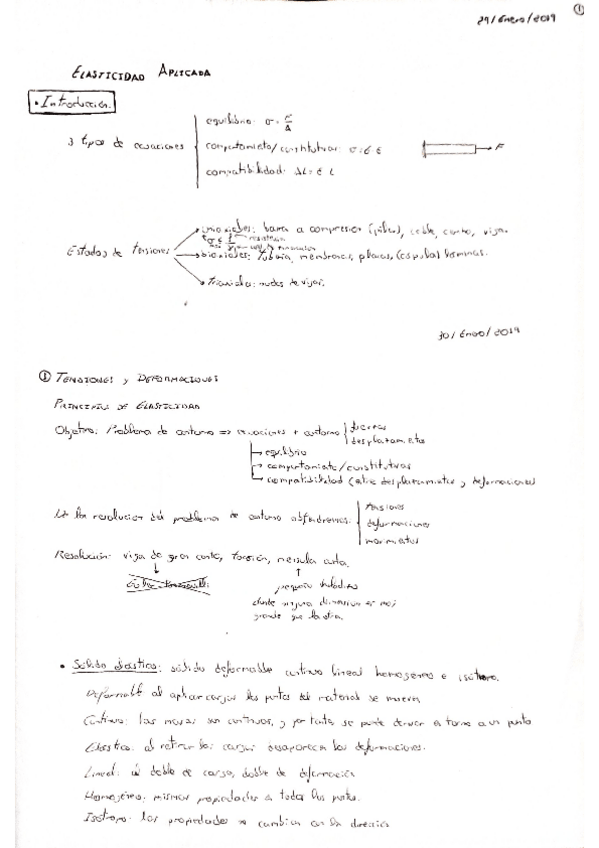 29/Enero/2019
1
ELASTICIDAD APLICADA
• Introducción.
3 tipos de ecuaciones
equilibrio: σ = F/A
comportamiento/constitutivas: σ = E ε
compatibilidad: ΔL = ε L
F
Estados de tensiones
uniaxiales: barra a compresión (pilar), cable, cuerda, viga.
biaxiales: tubería, membranas, placas, (cúpula) láminas.
Triaxiales: nudos de vigas.
30/Enero/2019
① TENSIONES y DEFORMACIONES
PRINCIPIOS DE ELASTICIDAD
Objetivo: Problema de contorno => ecuaciones + contorno
fuerzas
desplazamientos
equilibrio
comportamiento/constitutivas
compatibilidad (entre desplazamientos y deformaciones)
De la resolución del problema de contorno obtendremos:
tensiones
deformaciones
momentos
Resolución: viga de gran canto, torsión, mensula corta.
pequeño voladizo
donde ninguna dimension es muy
grande que la otra.
• Sólido elástico: sólido deformable continuo lineal homogeneo e isótropo.
Deformable al aplicar cargas los puntos del material se mueven
Continuo: las masas son continuas, y por tanto, se puede derivar en torno a un punto
Elastico: al retirar las cargas desaparecen las deformaciones.
Lineal: al doble de carga, doble de deformación
Homogéneo: mismas propiedades en todos los puntos.
Isótropo: las propiedades no cambian con la dirección